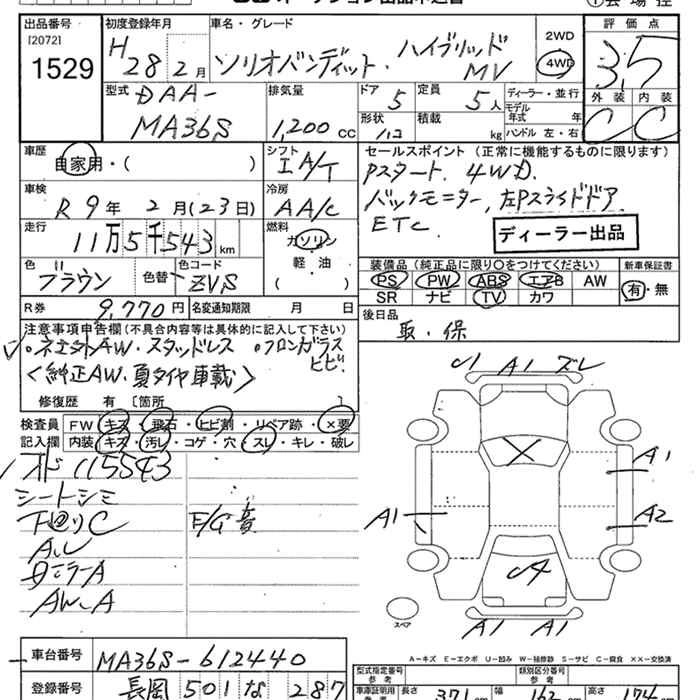 出品番号 初度登録年月 車名・グレード 2WD 評価点
[2072] H 28 2月 ソリオバンディット・ハイブリッド MV 4WD 3.5
1529
型式 排気量 ドア 定員 ディーラー・並行 外装 内装
DAA- 5 5人 モデル年式 年 C C
MA36S 1,200cc 形状 積載 kg ハンドル 左・右
車歴 自家用・( ) シフト IA/T セールスポイント (正常に機能するものに限ります)
Pスタート. 4WD.
車検 R 9年 2月(23日) 冷房 AA/C バックモニター, 左Pスライドドア
ETC
走行 11万5千543km 燃料 ガソリン ディーラー出品
軽・油
( )
色 ブラウン 色替 色コード ZVS 装備品(純正品に限り○をつけてください) 新車保証書
PS PW ABS エアB AW 有・無
SR ナビ TV カワ
R券 9,770円 名変通知期限 月 日 後日品
取・保
注意事項申告欄(不具合内容等は具体的に記入して下さい)
AW・スタッドレス 。フロントガラス
ヒビ
<純正AW・夏タイヤ車載>
修復歴 有 [箇所 ]
検査員 FW キズ・飛石・ヒビ割・リペア跡・×要
記入欄 内装 キズ・汚レ・コゲ・穴・スレ・キレ・破レ
115543
シートシミ
下回りC F/G
A.ル
ミラーA
AW-A
U1 A1 ズレ
A1
A1 A2
A1 A1
スペア
A-キズ E-エクボ U-凹み W-補修跡 S-サビ C-腐食 ××-交換済
車台番号 MA36S-612440 型式指定番号 参考 類別区分番号 参考
登録番号 長岡 501 な 287 車庫証明用 参考 長さ 371cm 幅 162cm 高さ 174cm